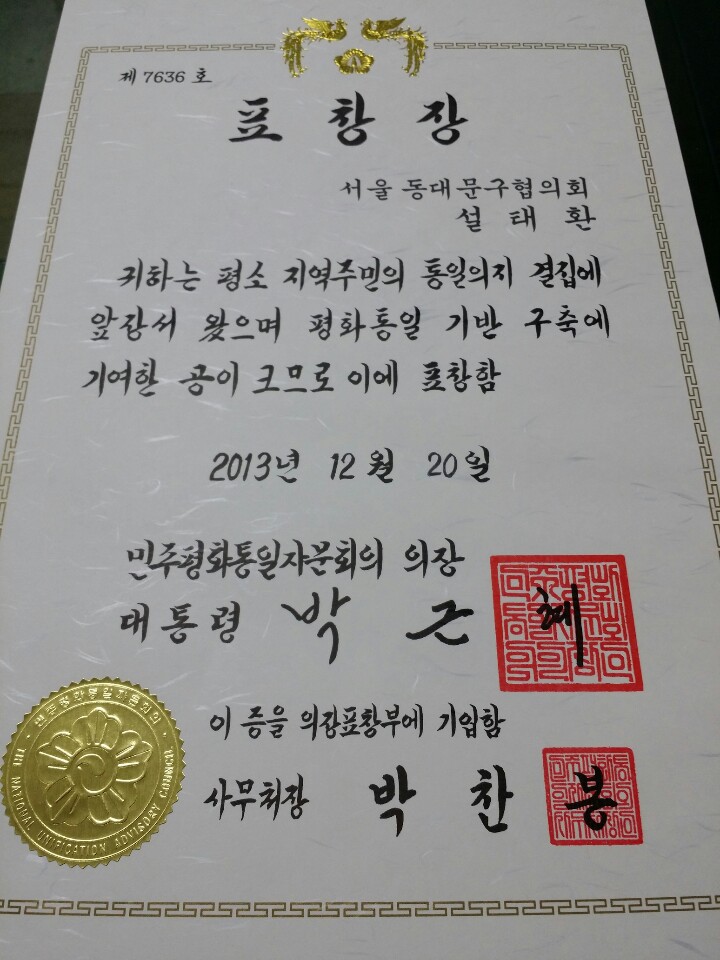 제 7636 호
표 창 장
서울 동대문구협의회
설 태 환
귀하는 평소 지역주민의 통일의지 결집에
앞장서 왔으며 평화통일 기반 구축에
기여한 공이 크므로 이에 표창함
2013년 12월 20일
민주평화통일자문회의 의장
대통령 박 근 혜
이 증을 의장표창부에 기입함
사무처장 박 찬 봉
민주평화통일자문회의
THE NATIONAL UNIFICATION ADVISORY COUNCIL